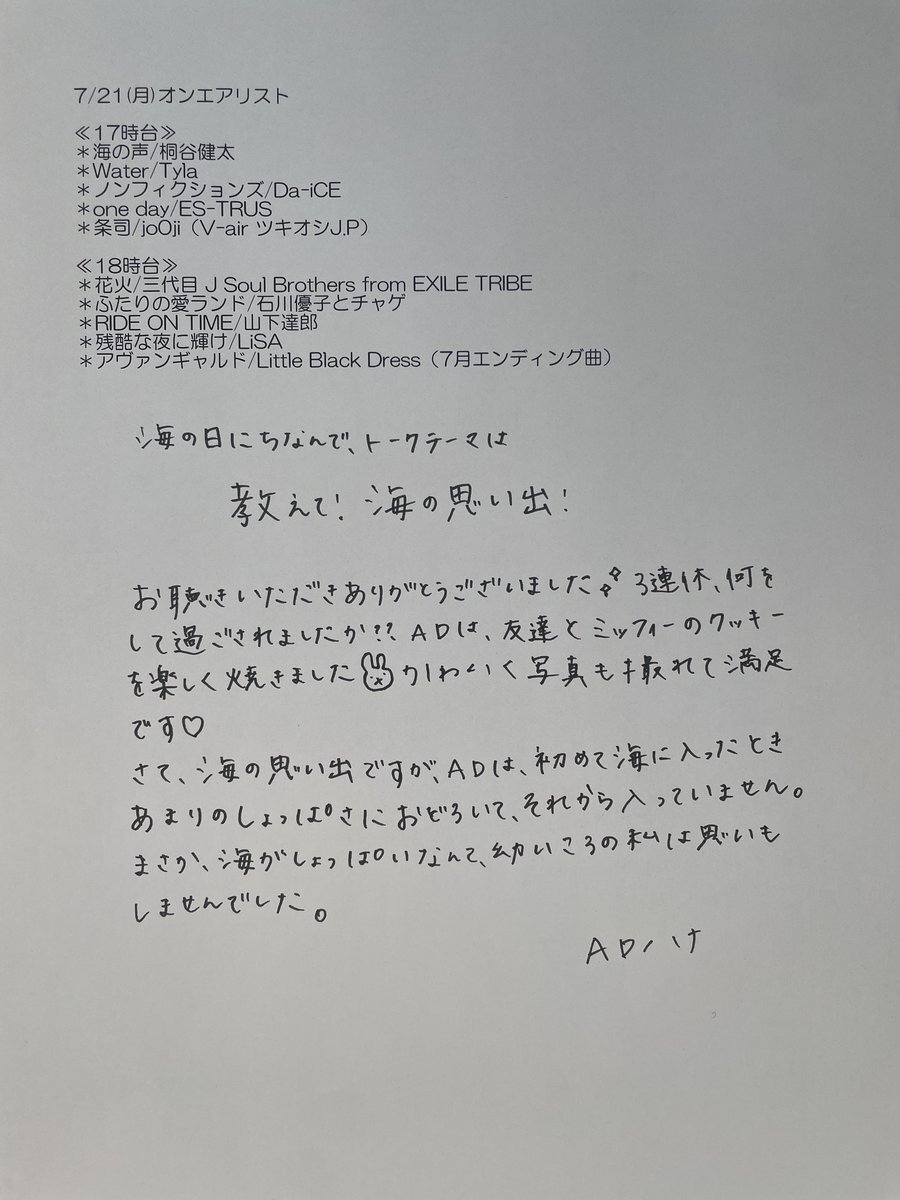 7/21(月)オンエアリスト
≪17時台≫
＊海の声/桐谷健太
＊Water/Tyla
＊ノンフィクションズ/Da-iCE
＊one day/ES-TRUS
＊条司/jo0ji（V-air ツキオシJ.P）
≪18時台≫
＊花火/三代目 J Soul Brothers from EXILE TRIBE
＊ふたりの愛ランド/石川優子とチャゲ
＊RIDE ON TIME/山下達郎
＊残酷な夜に輝け/LiSA
＊アヴァンギャルド/Little Black Dress（7月エンディング曲）
海の日にちなんで、トークテーマは
教えて! 海の思い出!
お聴きいただきありがとうございました 3連休、何を
して過ごされましたか?? ADは、友達とミッフィーのクッキー
を楽しく焼きました かわいく写真も撮れて満足
です♡
さて、海の思い出ですが、ADは、初めて海に入ったとき
あまりのしょっぱさにおどろいて、それから入っていません。
まさか、海がしょっぱいなんて、幼いころの私は思いも
しませんでした。
ADハナ